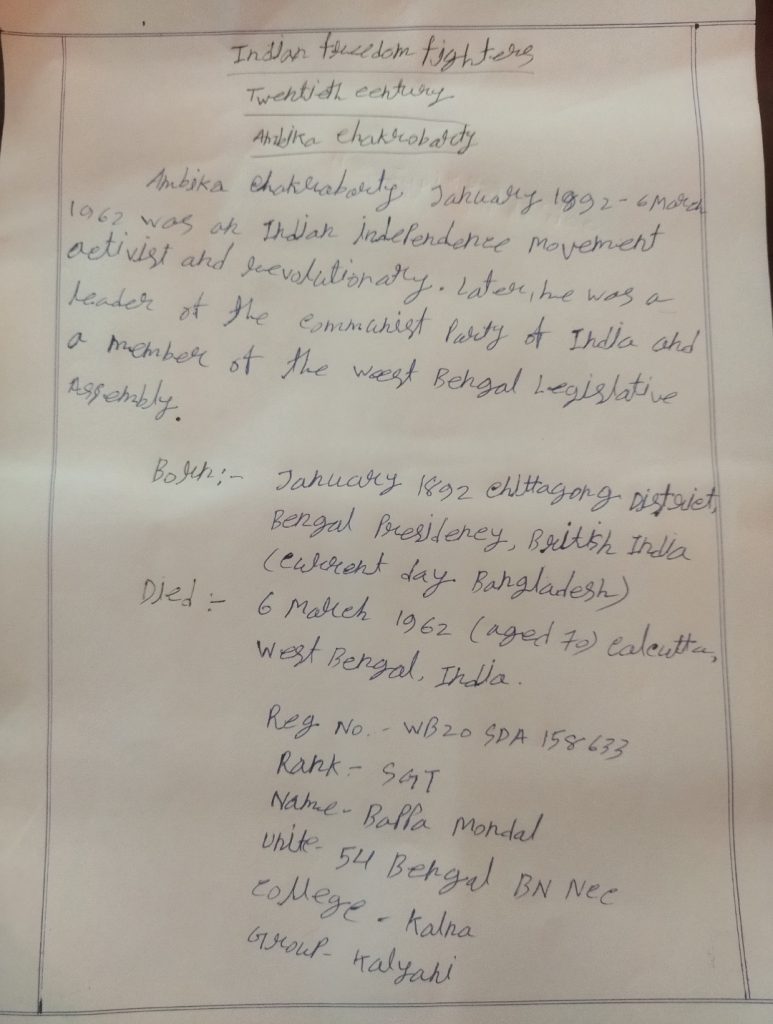 Indian freedom fighters
Twentieth century
Ambika chakrobarty
Ambika Chakrabarty, January 1892 - 6 March
1962 was an Indian independence movement
activist and revolutionary. Later, he was a
leader of the communist Party of India and
a member of the west Bengal Legislative
Assembly.
Born:- January 1892 chittagong District,
Bengal Presidency, British India
(current day Bangladesh)
Died :- 6 March 1962 (aged 70) calcutta,
West Bengal, India.
Reg No. - WB20 SDA 158633
Rank - SGT
Name - Bappa Mondal
Unite - 54 Bengal BN Ncc
college - Kalna
Group - Kalyani